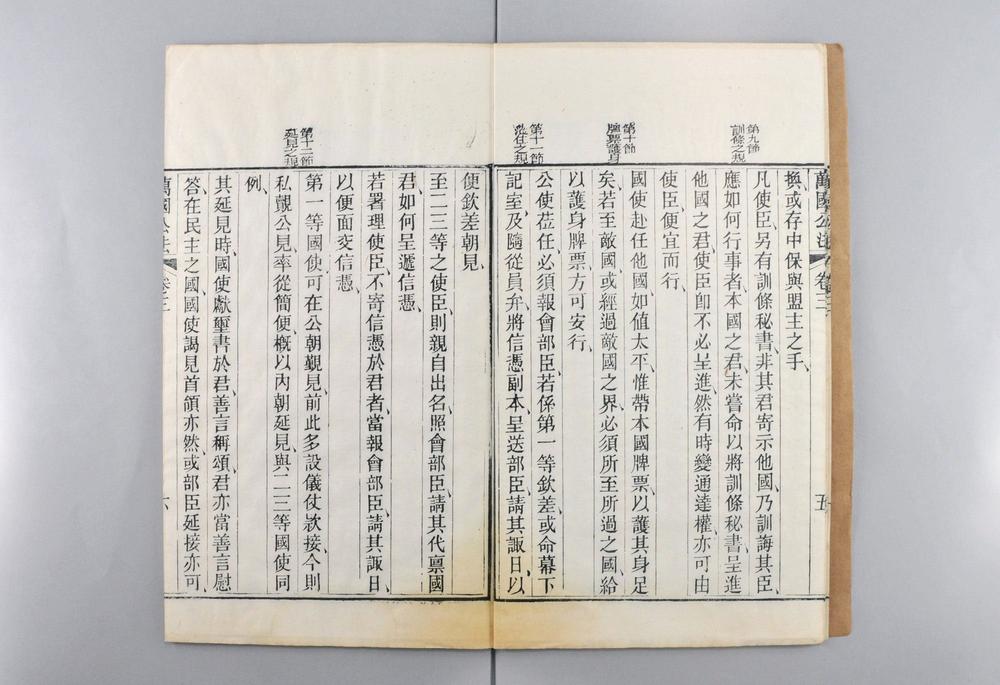 萬國公法 卷三 五
換、或存中保與盟主之手、
第九節
訓條之規
凡使臣另有訓條秘書、非其君寄示他國、乃訓誨其臣、
應如何行事者、本國之君、未嘗命以將訓條秘書、呈進
他國之君、使臣卽不必呈進、然有時變通達權、亦可由
使臣便宜而行、
第十節
牌票護身
國使赴任他國、如值太平、惟帶本國牌票、以護其身足
矣、若至敵國、或經過敵國之界、必須所至所過之國、給
以護身牌票、方可安行、
第十一節
蒞任之規
公使蒞任、必須報會部臣、若係第一等欽差、或命幕下
記室、及隨從員弁、將信憑副本、呈送部臣、請其諏日、以
便欽差朝見、
至二三等之使臣、則親自出名、照會部臣、請其代禀國
君、如何呈遞信憑、
若署理使臣、不寄信憑於君者、當報會部臣、請其諏日、
以便面交信憑、
第十二節
延見之規
第一等國使、可在公朝覲見、前此多設儀仗欵接、今則
私覿公見、率從簡便、概以內朝延見、與二三等國使同
例、
其延見時、國使獻璽書於君、善言稱頌、君亦當善言慰
答、在民主之國、國使謁見首領亦然、或部臣延接亦可、
萬國公法 卷三 六